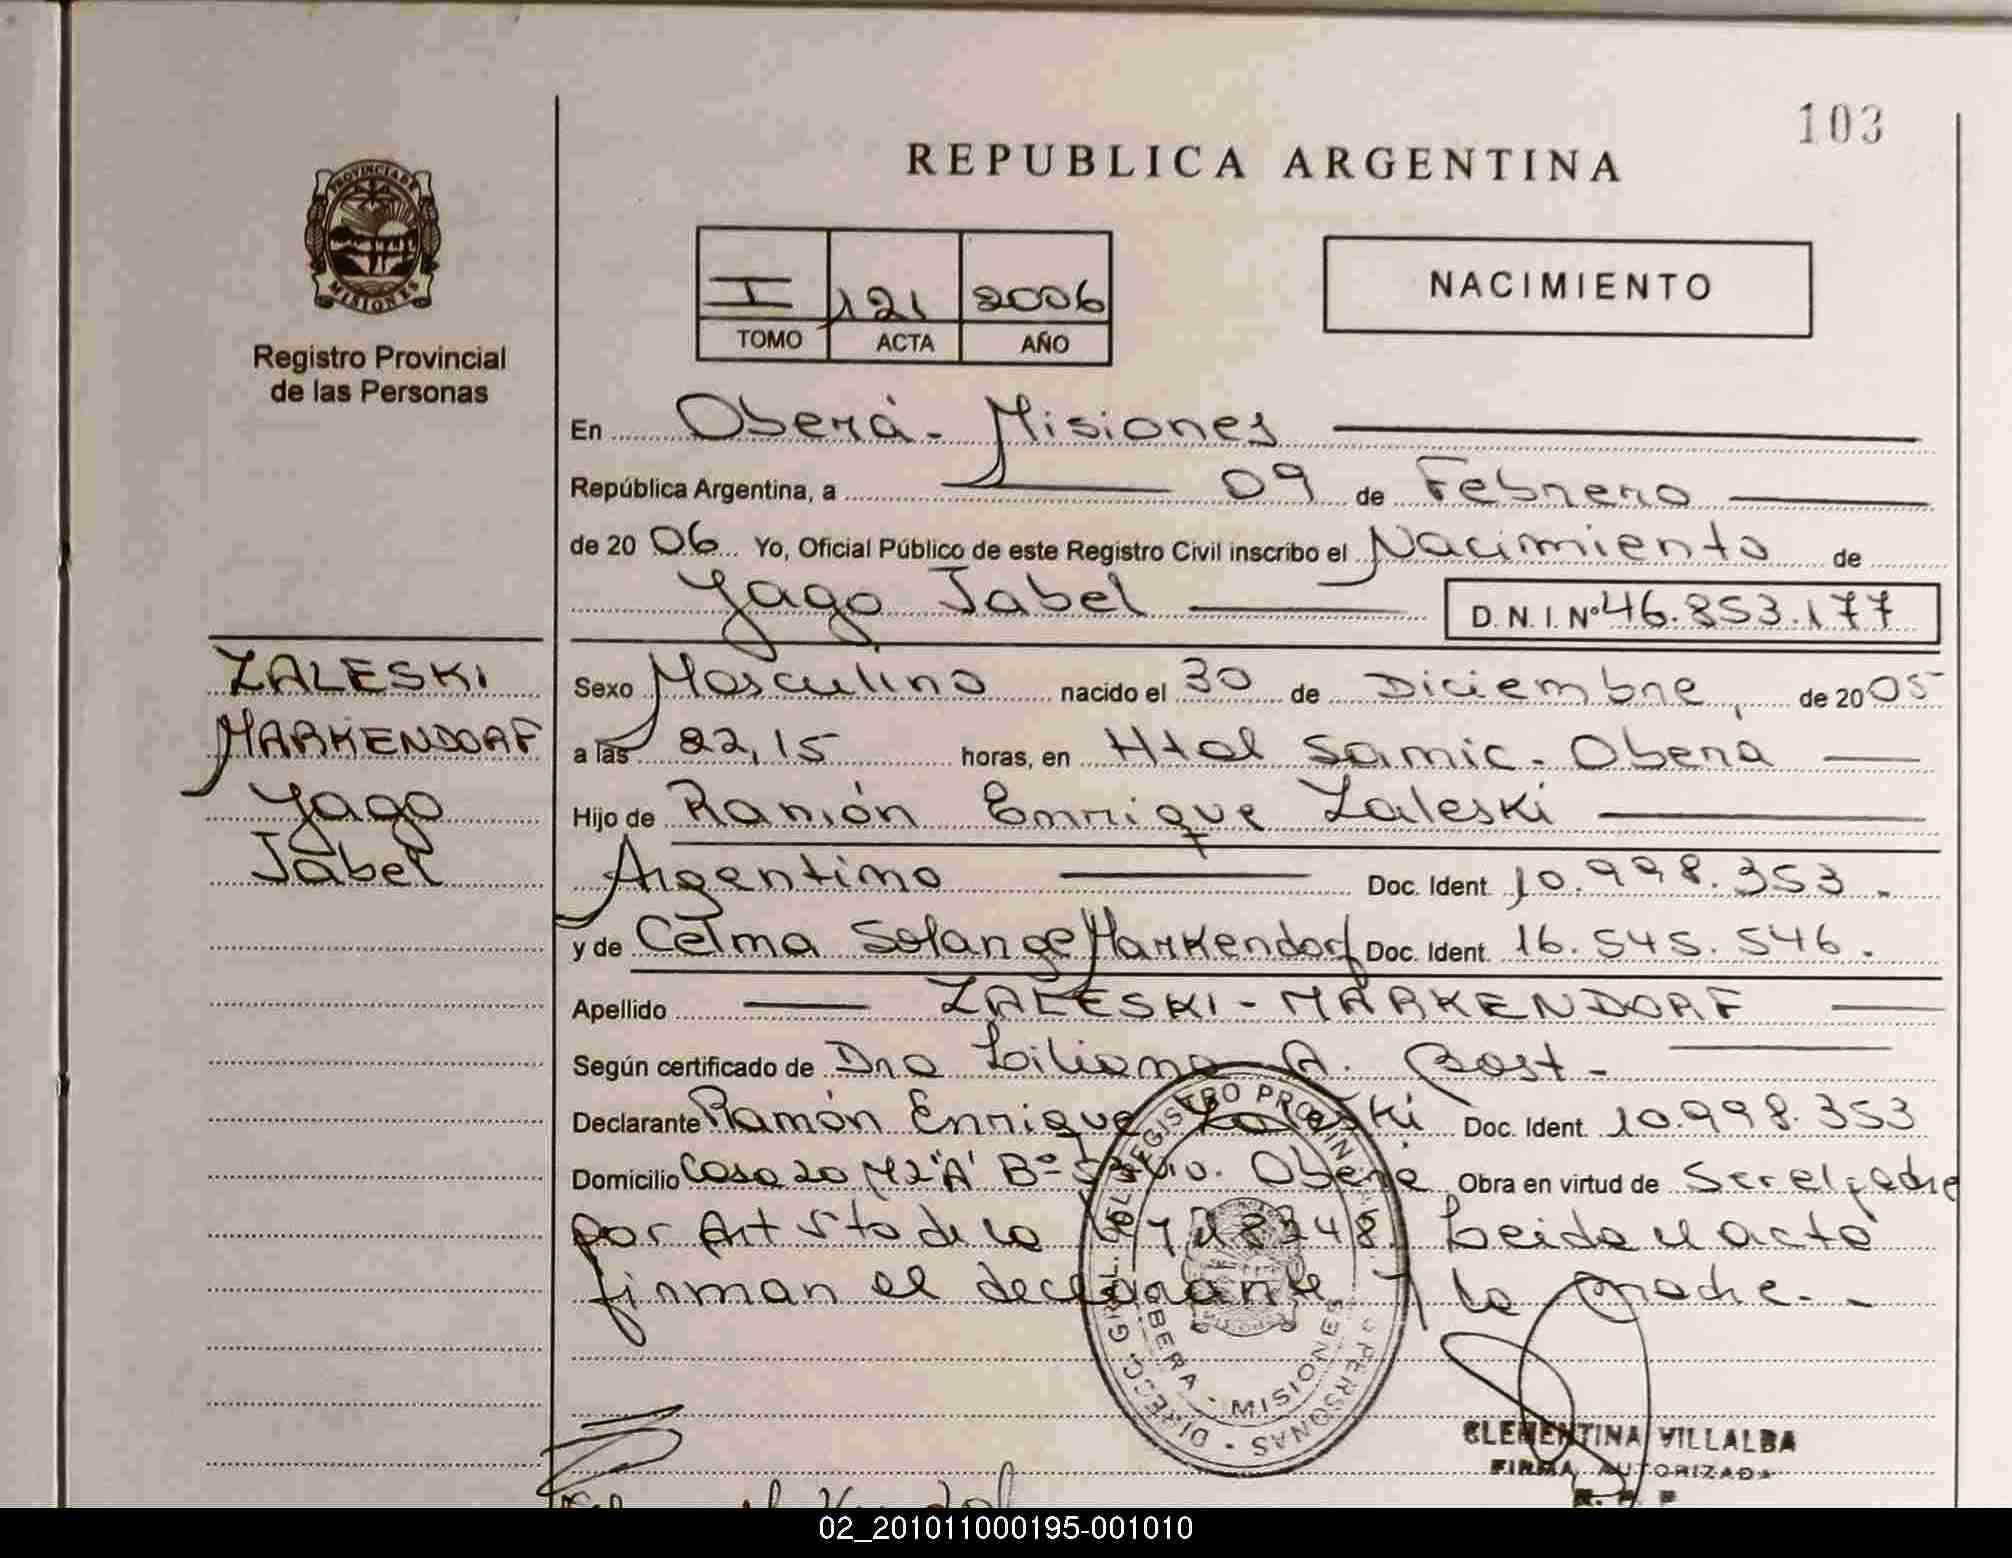 103
REPUBLICA ARGENTINA
PROVINCIA DE
MISIONES
Registro Provincial
de las Personas
I 121 2006
TOMO ACTA AÑO
NACIMIENTO
En Oberá - Misiones
República Argentina, a 09 de Febrero
de 20 06 Yo, Oficial Público de este Registro Civil inscribo el Nacimiento de
Yago Jabel D.N.I. Nº 46.853.177
ZALESKI
MARKENDORF
Yago
Jabel
Sexo Masculino nacido el 30 de Diciembre, de 20 05
a las 22,15 horas, en Htal Samic - Oberá
Hijo de Ramón Enrique Zaleski
Argentino Doc. Ident. 10.998.353.
y de Celma Solange Markendorf Doc. Ident. 16.545.546.
Apellido ZALESKI - MARKENDORF
Según certificado de Dra Liliana A. Bast -
Declarante Ramón Enrique Zaleski Doc. Ident. 10.998.353
Domicilio Casa 20 Mz "A" Bº Oberá Obra en virtud de Ser el padre
por Art 5to de la Ley 18248. Leida el acta
firman el declarante y la madre. -
DIRECC. GRAL. DEL REGISTRO PROVINC. PERSONAS
OBERA - MISIONES
CLEMENTINA VILLALBA
FIRMA AUTORIZADA
R. P. P
02_201011000195-001010